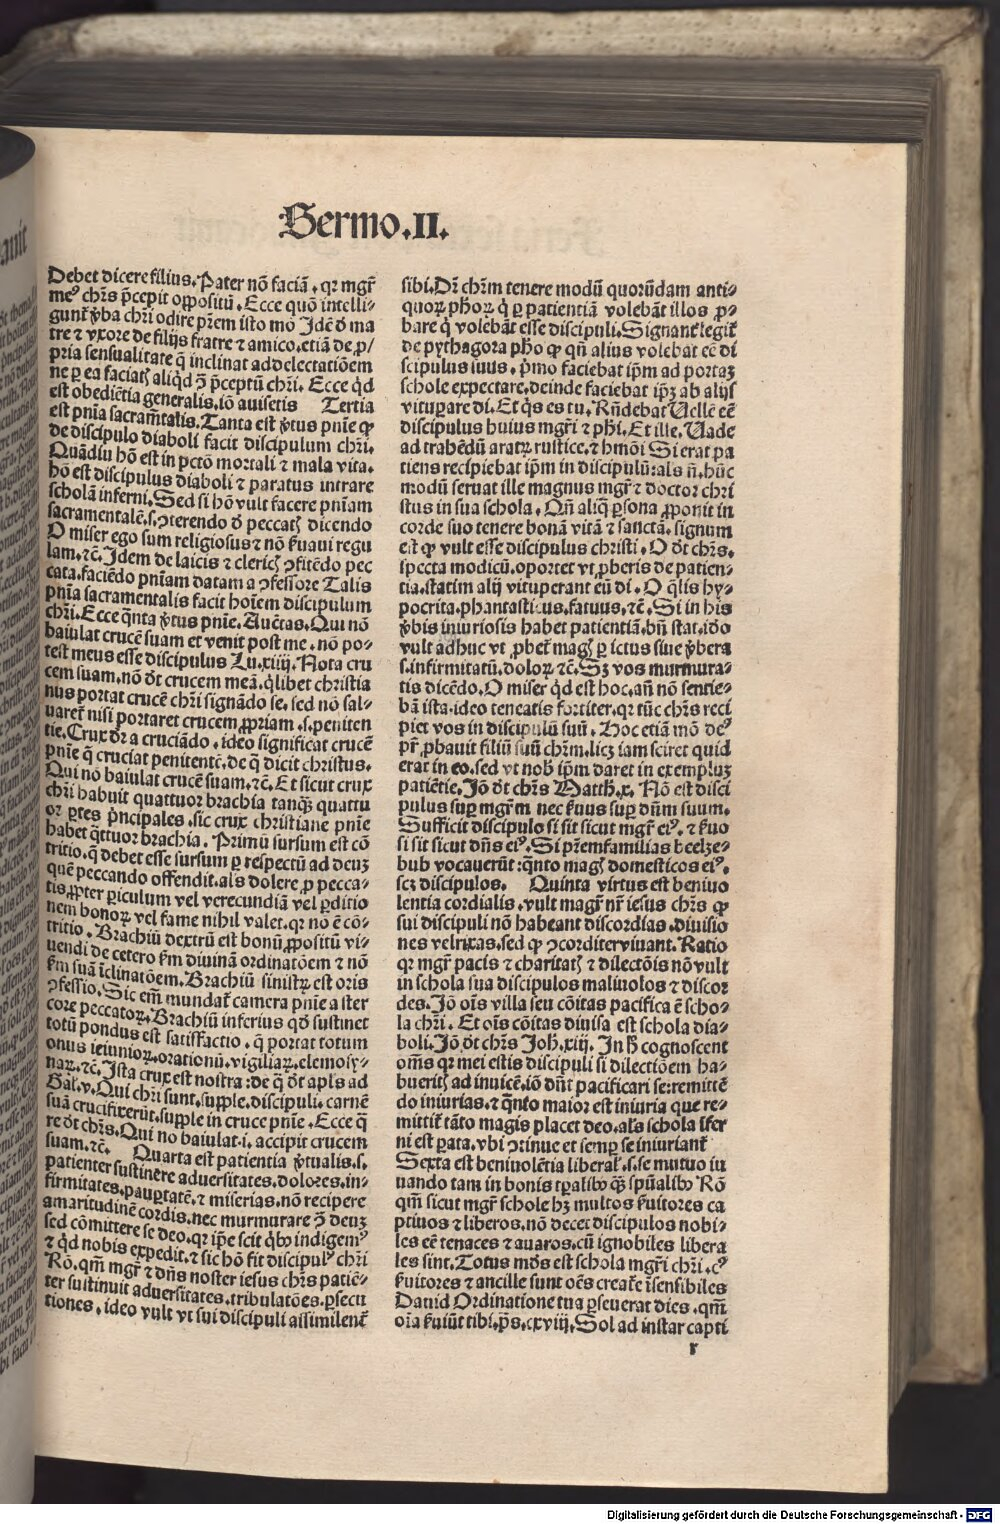 Sermo.II.
Debet dicere filius. Pater nō faciā. qr mgr̄
meꝰ chr̄s p̄cepit oppositū. Ecce quō intelli-
gunt̄ v̄ba chr̄i odire prēm isto mō Idē d̄ ma
tre ⁊ vxore de filijs fratre ⁊ amico. etiā de p̱/
pria sensualitate q̄ inclinat ad delectatiōem
ne p ea faciatꝭ aliq̇d ɔ̄ p̄ceptū chr̄i. Ecce q̇d
est obediētia generalis. iō auisetis Tertia
est pn̄ia sacram̄talis. Tanta est v̓tus pnīe ꝙ
de discipulo diaboli facit discipulum chr̄i.
Quādiu hō est in pctō mortali ⁊ mala vita.
hō est discipulus diaboli ⁊ paratus intrare
scholā inferni. Sed si hō vult facere pnīam
sacramentalē. s. ɔterendo d̄ peccatꝭ dicendo
O miser ego sum religiosus ⁊ nō ẜuaui regu
lam. ⁊c̄. Idem de laicis ⁊ clericꝭ ɔfitēdo pec
cata. faciēdo pnīam datam a ɔfessore Talis
pn̄ia sacramentalis facit hoīem discipulum
chr̄i. Ecce q̄nta v̓tus pnīe. Auc̄tas. Qui nō
baiulat crucē suam et venit post me. nō po-
test meus esse discipulus Lu. xiiij. Nota cru
cem suam. nō dt̄ crucem meā. q̇libet christia
nus portat crucē chr̄i signādo se. sed nō sal-
uaret̄ nisi portaret crucem p̱priam. s. peniten
tie. Crux dr̄ a cruciādo. ideo significat crucē
pnīe q̄ cruciat penitentē. de q̄ dicit christus.
Qui nō baiulat crucē suam. ⁊c̄. Et sicut crux
chr̄i habuit quattuor brachia tanqꝫ quattu
or ꝑtes p̓ncipales. sic crux christiane pnīe
habet q̄ttuor brachia. Primū sursum est cō
tritio. q̄ debet esse sursum ꝑ respectū ad deuꝫ
quē peccando offendit. als dolere p̱ pecca-
tis. p̱pter ꝑiculum vel verecundiā vel ꝑditio
nem bonoꝝ vel fame nihil valet. qr no ē cō-
tritio. Brachiū dextrū est bonū p̱positū vi-
uendi de cetero ẜm diuinā ordinatōem ⁊ nō
ẜm suā īclinatōem. Brachiū sinistrꝫ est oris
ɔfessio. Sic em̄ mundat̄ camera pnīe a ster
core peccatoꝝ. Brachiū inferius qd̄ sustinet
totū pondus est satisfactio. q̄ portat totum
onus ieiunioꝝ. orationū. vigiliaꝝ. elemosy-
naꝝ. ⁊c̄. Ista crux est nostra: de q̄ dt̄ apl̄s ad
Gal. v. Qui chr̄i sunt. supple. discipuli. carnē
suā crucifixerūt. supple in cruce pnīe. Ecce q̄
re dt̄ chr̄s. Qui no baiulat. i. accipit crucem
suam. ⁊c̄. Quarta est patientia v̓tualis. s.
patienter sustinere aduersitates. dolores. in-
firmitates. pauꝑtatē. ⁊ miserias. nō recipere
amaritudinē cordis. nec murmurare ɔ̄ deuꝫ
sed cōmittere se deo. qr ip̄e scit q̇bꝰ indigemꝰ
⁊ q̇d nobis expedit. ⁊ sic hō fit discipulꝰ chr̄i
Rō. qm̄ mgr̄ ⁊ dn̄s noster iesus chr̄s patiē-
ter sustinuit aduersitates. tribulatōes. ꝑsecu
tiones. ideo vult vt sui discipuli assimilent̄
sibi. Dr̄ chr̄m tenere modū quorūdam anti-
quoꝝ ph̄oꝝ q̇ ꝑ patientiā volebāt illos p̱-
bare q̇ volebāt esse discipuli. Signant̄ legit̄
de pythagora ph̄o ꝙ qn̄ alius volebat eē di
scipulus suus. p̓mo faciebat ip̄m ad portaꝫ
schole expectare. deinde faciebat ip̄ꝫ ab alijs
vituꝑare di. Et q̇s es tu. Rn̄debat Uelle eē
discipulus huius mgr̄i ⁊ ph̄i. Et ille. Uade
ad trahēdū aratrꝫ rustice. ⁊ hmōi Si erat pa
tiens recipiebat ip̄m in discipulū: als n̄. hūc
modū seruat ille magnus mgr̄ ⁊ doctor chri
stus in sua schola. Qn̄ aliq̄ ꝑsona p̱ponit in
corde suo tenere bonā vitā ⁊ sanctā. signum
est ꝙ vult esse discipulus christi. O dt̄ chr̄s.
specta modicū. oportet vt p̱beris de patien-
tia. statim alij vituperant eū di. O q̄lis hy-
pocrita. phantasticus. fatuus. ⁊c̄. Si in his
v̓bis iniuriosis habet patientiā. bn̄ stat. ideo
vult adhuc vt p̱bet̄ magꝭ ꝑ ictus siue v̓bera
s. infirmitatū. doloꝝ ⁊c̄. Sꝫ vos murmura-
tis dicēdo. O miser q̇d est hoc. an̄ nō sentie-
bā ista. ideo teneatis fortiter. qr tūc chr̄s reci
piet vos in discipulū suū. Hoc etiā mō deꝰ
pr̄ p̱bauit filiū suū chr̄m. licꝫ iam sciret quid
erat in eo. sed vt nobꝭ ip̄m daret in exempluꝫ
patiētie. Iō dt̄ chr̄s Matth. x. Nō est disci
pulus suꝑ mgr̄m nec ẜuus suꝑ dn̄m suum.
Sufficit discipulo si sit sicut mgr̄ eiꝰ. ⁊ ẜuo
si sit sicut dn̄s eiꝰ. Si prēmfamilias beelze-
bub vocauerūt: q̄nto magꝭ domesticos eiꝰ.
scꝫ discipulos. Quinta virtus est beniuo
lentia cordialis. vult magr̄ nr̄ iesus chr̄s ꝙ
sui discipuli nō habeant discordias. diuisio
nes vel rixas. sed ꝙ ɔcorditer viuant. Ratio
qr mgr̄ pacis ⁊ charitatꝭ ⁊ dilectōis nō vult
in schola sua discipulos maliuolos ⁊ discor
des. Iō oīs villa seu cōitas pacifica ē scho-
la chr̄i. Et oīs cōitas diuisa est schola dia-
boli. Iō dt̄ chr̄s Joh. xiij. In h̄ cognoscent
om̄s qr mei estis discipuli si dilectiōem ha-
bueritꝭ ad inuicē. iō dn̄t pacificari se: remittē
do iniurias. ⁊ q̄nto maior est iniuria que re-
mittit̄ tāto magis placet deo. als schola īfer
ni est ꝑata. vbi ɔtinue et semꝑ se iniuriant̄
Sexta est beniuolētia liberal̓. s. se mutuo iu
uando tam in bonis tꝑalibꝰ qꝫ spūalibꝰ Rō
qm̄ sicut mgr̄ schole hꝫ multos ẜuitores ca
ptiuos ⁊ liberos. nō decet discipulos nobi-
les eē tenaces ⁊ auaros. cū ignobiles libera
les sint. Totus mūdꝰ est schola mgr̄i chr̄i. cꝰ
ẜuitores ⁊ ancille sunt oēs creat̄e īsensibiles
Dauid Ordinatione tua ꝑseuerat dies. qm̄
oīa ẜuiūt tibi. ps̄. cxviij. Sol ad instar capti
r
Digitalisierung gefördert durch die Deutsche Forschungsgemeinschaft - DFG